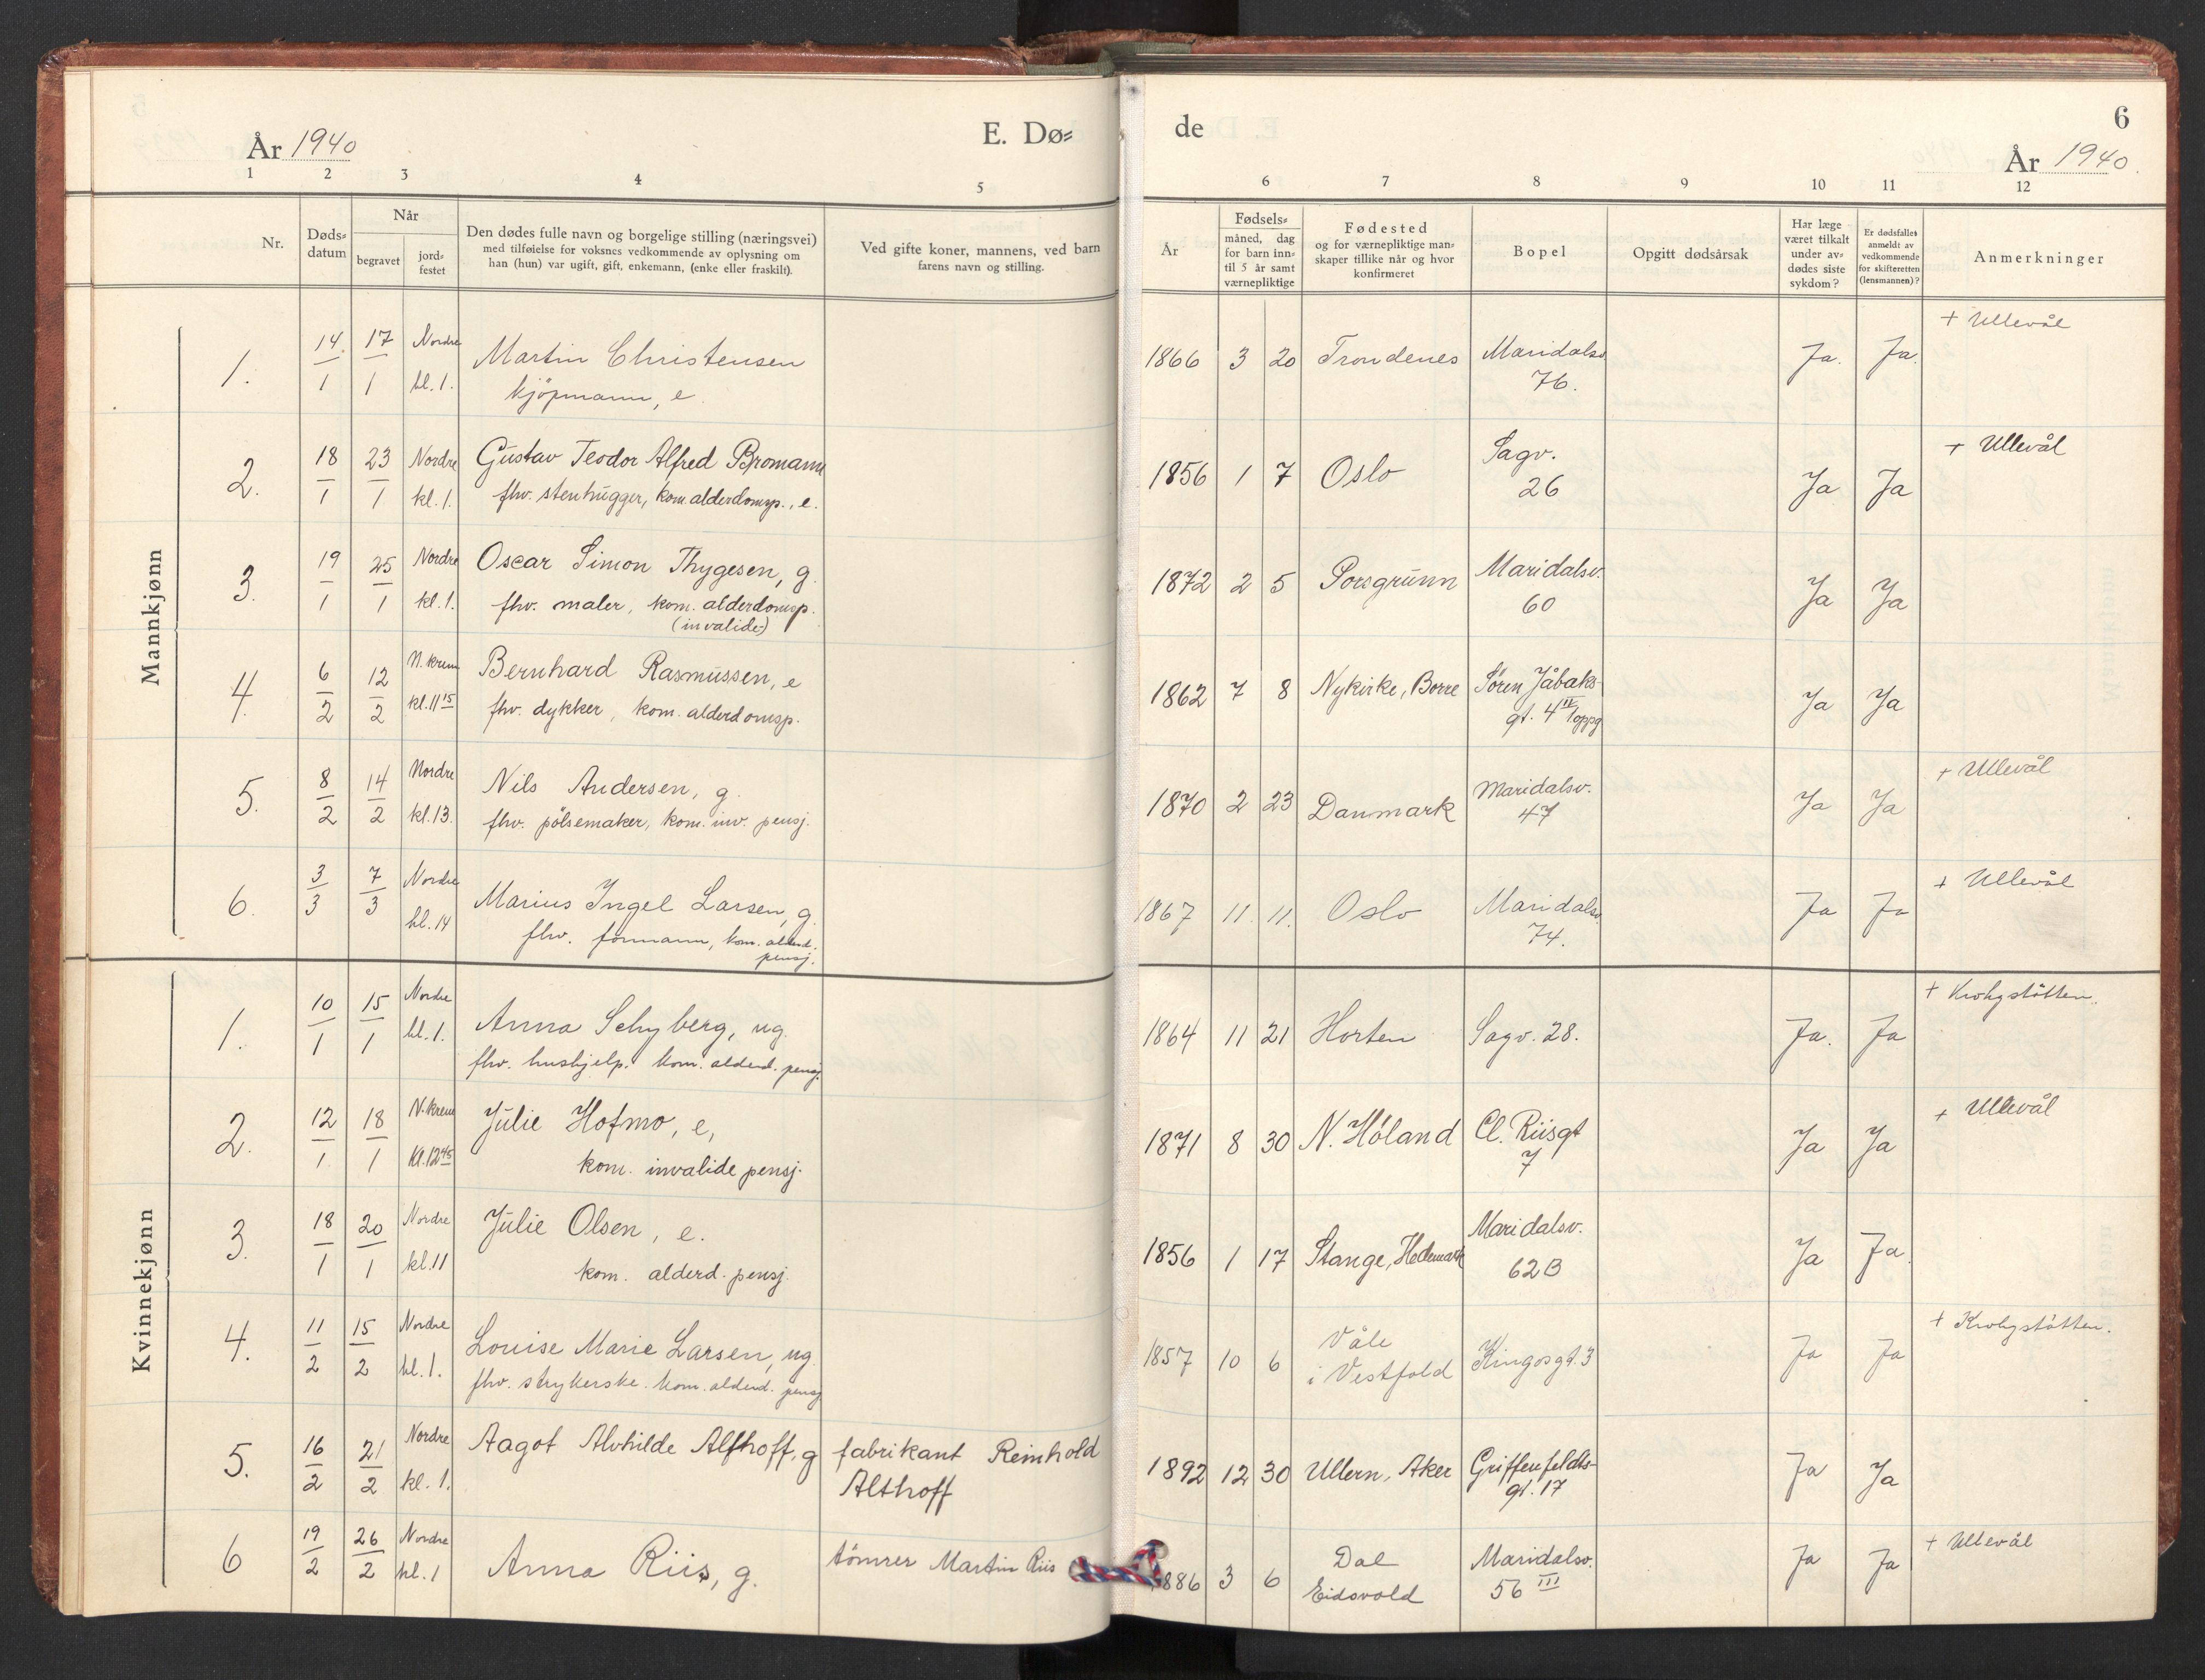 År 1940
E. Dø=
de
6
År 1940.
1 2 3 4 5
6 7 8 9 10 11 12
Nr.
Døds=
datum
Når
begravet
jord=
festet
Den dødes fulle navn og borgelige stilling (næringsvei)
med tilføielse for voksnes vedkommende av oplysning om
han (hun) var ugift, gift, enkemann, (enke eller fraskilt).
Ved gifte koner, mannens, ved barn
farens navn og stilling.
År
Fødsels=
måned, dag
for barn inn=
til 5 år samt
værnepliktige
Fødested
og for værnepliktige man=
skaper tillike når og hvor
konfirmeret
Bopel
Opgitt dødsårsak
Har læge
været tilkalt
under av=
dødes siste
sykdom?
Er dødsfallet
anmeldt av
vedkommende
for skifteretten
(lensmannen)?
Anmerkninger
Mannkjønn
1. 14/1 17/1 Nordre kl. 1. Martin Christensen
kjöpmann, e.
1866 3 20 Trondenes Maridalsv.
76.
Ja. Ja. + Ullevål
2. 18/1 23/1 Nordre kl. 1. Gustav Teodor Alfred Bromann
fhv. stenhugger, kom. alderdomsp., e.
1856 1 7 Oslo Sagv.
26
Ja Ja + Ullevål
3. 19/1 25/1 Nordre kl. 1. Oscar Simon Thygesen, g.
fhv. maler, kom. alderdomsp.
(invalide)
1872 2 5 Porsgrunn Maridalsv.
60
Ja Ja
4. 6/2 12/2 N. krem kl. 11 15 Bernhard Rasmussen, e
fhv. dykker, kom. alderdomsp.
1862 7 8 Nykirke, Borre Søren Jåbaks-
gt. 4 II oppg
Ja Ja
5. 8/2 14/2 Nordre kl. 13. Nils Andersen, g.
fhv. pölsemaker, kom. inv. pensj.
1870 2 23 Danmark Maridalsv.
47
Ja Ja + Ullevål
6. 3/3 7/3 Nordre kl. 14 Marius Ingel Larsen, g.
fhv. formann, kom. alderd.
pensj.
1867 11. 11. Oslo Maridalsv.
74.
Ja Ja + Ullevål
Kvinnekjønn
1. 10/1 15/1 Nordre kl. 1. Anna Schyberg, ug.
fhv. hushjelp. kom. alderd. pensj.
1864 11 21 Horten Sagv. 28.
Ja. Ja + Krohgstötten.
2. 12/1 18/1 N. krem Kl. 12 45 Julie Hofmo, e,
kom. invalide pensj.
1871 8 30 N. Höland Cl. Riisgt
7
Ja Ja + Ullevål
3. 18/1 20/1 Nordre kl. 11 Julie Olsen, e.
kom. alderd. pensj.
1856 1 17 Stange, Hedemark Maridalsv.
62B
Ja Ja.
4. 11/2 15/2 Nordre kl. 1. Louise Marie Larsen, ug.
fhv. strykerske. kom. alderd. pensj
1857 10 6 Våle
i Vestfold Kingosgt. 3
Ja Ja + Krohgstötten.
5. 16/2 21/2 Nordre kl. 1. Aagot Alvhilde Althoff, g fabrikant Reinhold
Althoff
1892 12 30 Ullern, Aker Griffenfeldts-
gt. 17
Ja Ja
6 19/2 26/2 Nordre kl. 1 Anna Riis, g. tömrer Martin Riis
1886 3 6 Dal
Eidsvold Maridalsv.
56 III
Ja Ja + Ullevål